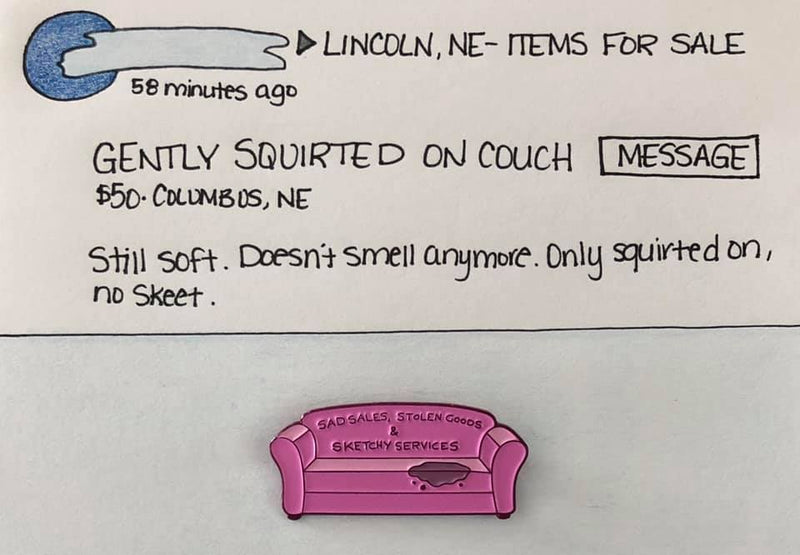 LINCOLN, NE- ITEMS FOR SALE
58 minutes ago
GENTLY SQUIRTED ON COUCH MESSAGE
$50· COLUMBUS, NE
Still soft. Doesn't smell anymore. Only squirted on,
no skeet.
SAD SALES, STOLEN GOODS
&
SKETCHY SERVICES